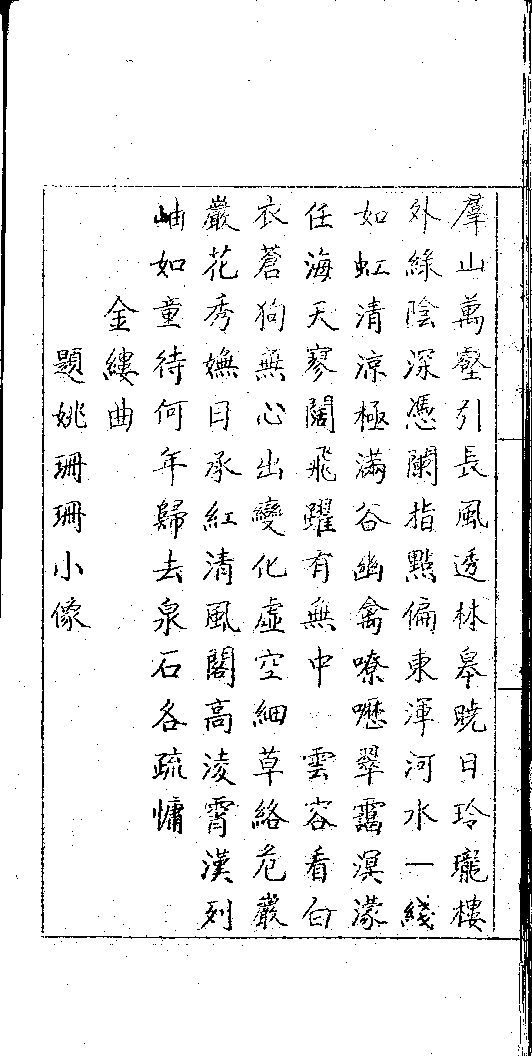 羣山萬壑引長風透林皋曉日玲瓏樓
外綠陰深憑闌指點偏東渾河水一綫
如虹清涼極滿谷幽禽嘹嚦翠靄溟濛
任海天寥闊飛躍有無中　雲容看白
衣蒼狗無心出變化虛空細草絡危巖
巖花秀嫵日承紅清風閣高淩霄漢列
岫如童待何年歸去泉石各疏慵
金縷曲
題姚珊珊小像